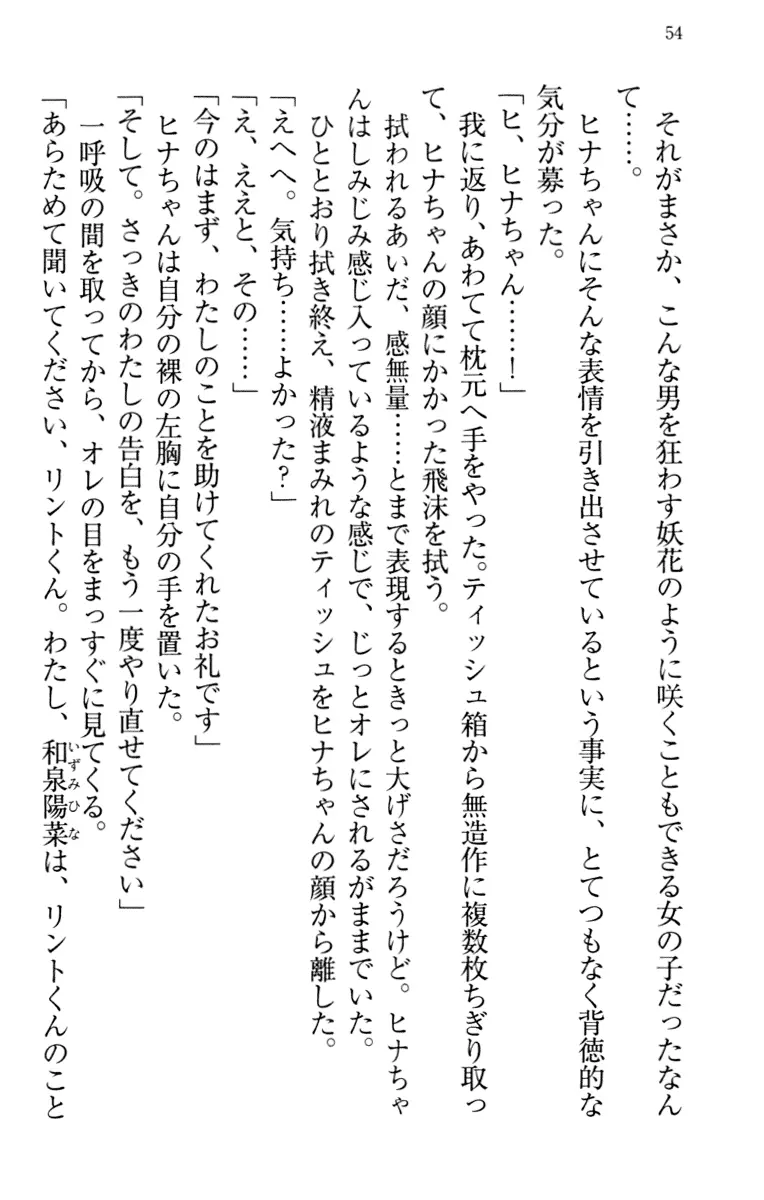 54
それがまさか、こんな男を狂わす妖花のように咲くこともできる女の子だったなん
て……。
ヒナちゃんにそんな表情を引き出させているという事実に、とてつもなく背徳的な
気分が募った。
「ヒ、ヒナちゃん……！」
我に返り、あわてて枕元へ手をやった。ティッシュ箱から無造作に複数枚ちぎり取っ
て、ヒナちゃんの顔にかかった飛沫を拭う。
拭われるあいだ、感無量……とまで表現するときっと大げさだろうけど。ヒナちゃ
んはしみじみ感じ入っているような感じで、じっとオレにされるがままでいた。
ひととおり拭き終え、精液まみれのティッシュをヒナちゃんの顔から離した。
「えへへ。気持ち……よかった？」
「え、ええと、その……」
「今のはまず、わたしのことを助けてくれたお礼です」
ヒナちゃんは自分の裸の左胸に自分の手を置いた。
「そして。さっきのわたしの告白を、もう一度やり直せてください」
一呼吸の間を取ってから、オレの目をまっすぐに見てくる。
「あらためて聞いてください、リントくん。わたし、和泉陽菜は、リントくんのこと
いずみひな